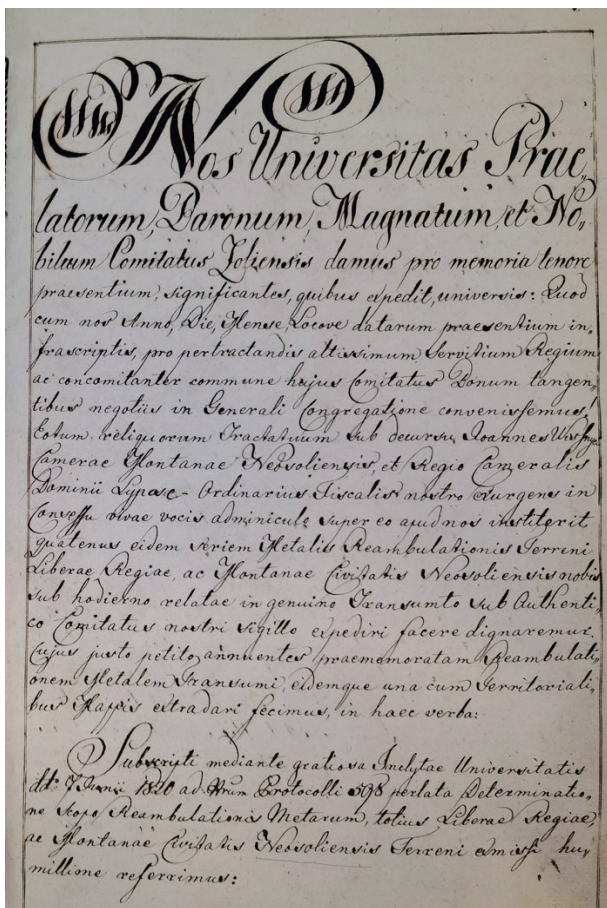 Nos Universitas Prae„
latorum, Baronum, Magnatum, et No„
bilium Comitatus Zoliensis damus pro memoria tenore
praesentium, significantes, quibus expedit, universis: Quod
cum nos Anno, Die, Mense, Locove datarum praesentium in„
frascriptis, pro pertractandis altissimum Servitium Regium
ac concomitanter commune hujus Comitatus Bonum tangen„
tibus negotiis in Generali Congregatione convenissemus,
Eotum reliquorum Tractatuum sub decursu, Joannes
Camerae Montanae Neosoliensis, et Regio Cameralis
Dominii Lypcse - Ordinarius Fiscalis nostro exurgens in
Consessu vivae vocis adminiculo super eo apud nos institerit
quatenus eidem seriem Metalis Reambulationis Terreni
Liberae Regiae, ac Montanae Civitatis Neosoliensis nobis
sub hodierno relatae in genuino Transumto sub Authenti„
co Comitatus nostri sigillo expediri facere dignaremur.
Cujus justo petito annuentes praememoratam Reambulati„
onem Metalem Transumi, eidemque una cum Territoriali„
bus Mappis extradari fecimus, in haec verba:
Subscripti mediante gratiosa Inclytae Universitatis
ddto 7 Junii 1820 ad Nrum Protocolli 598 perlata Determinatio„
ne scopo Reambulationis Metarum, totius Liberae Regiae,
ac Montanae Civitatis Neosoliensis Terreni emissi hu„
millime referrimus: